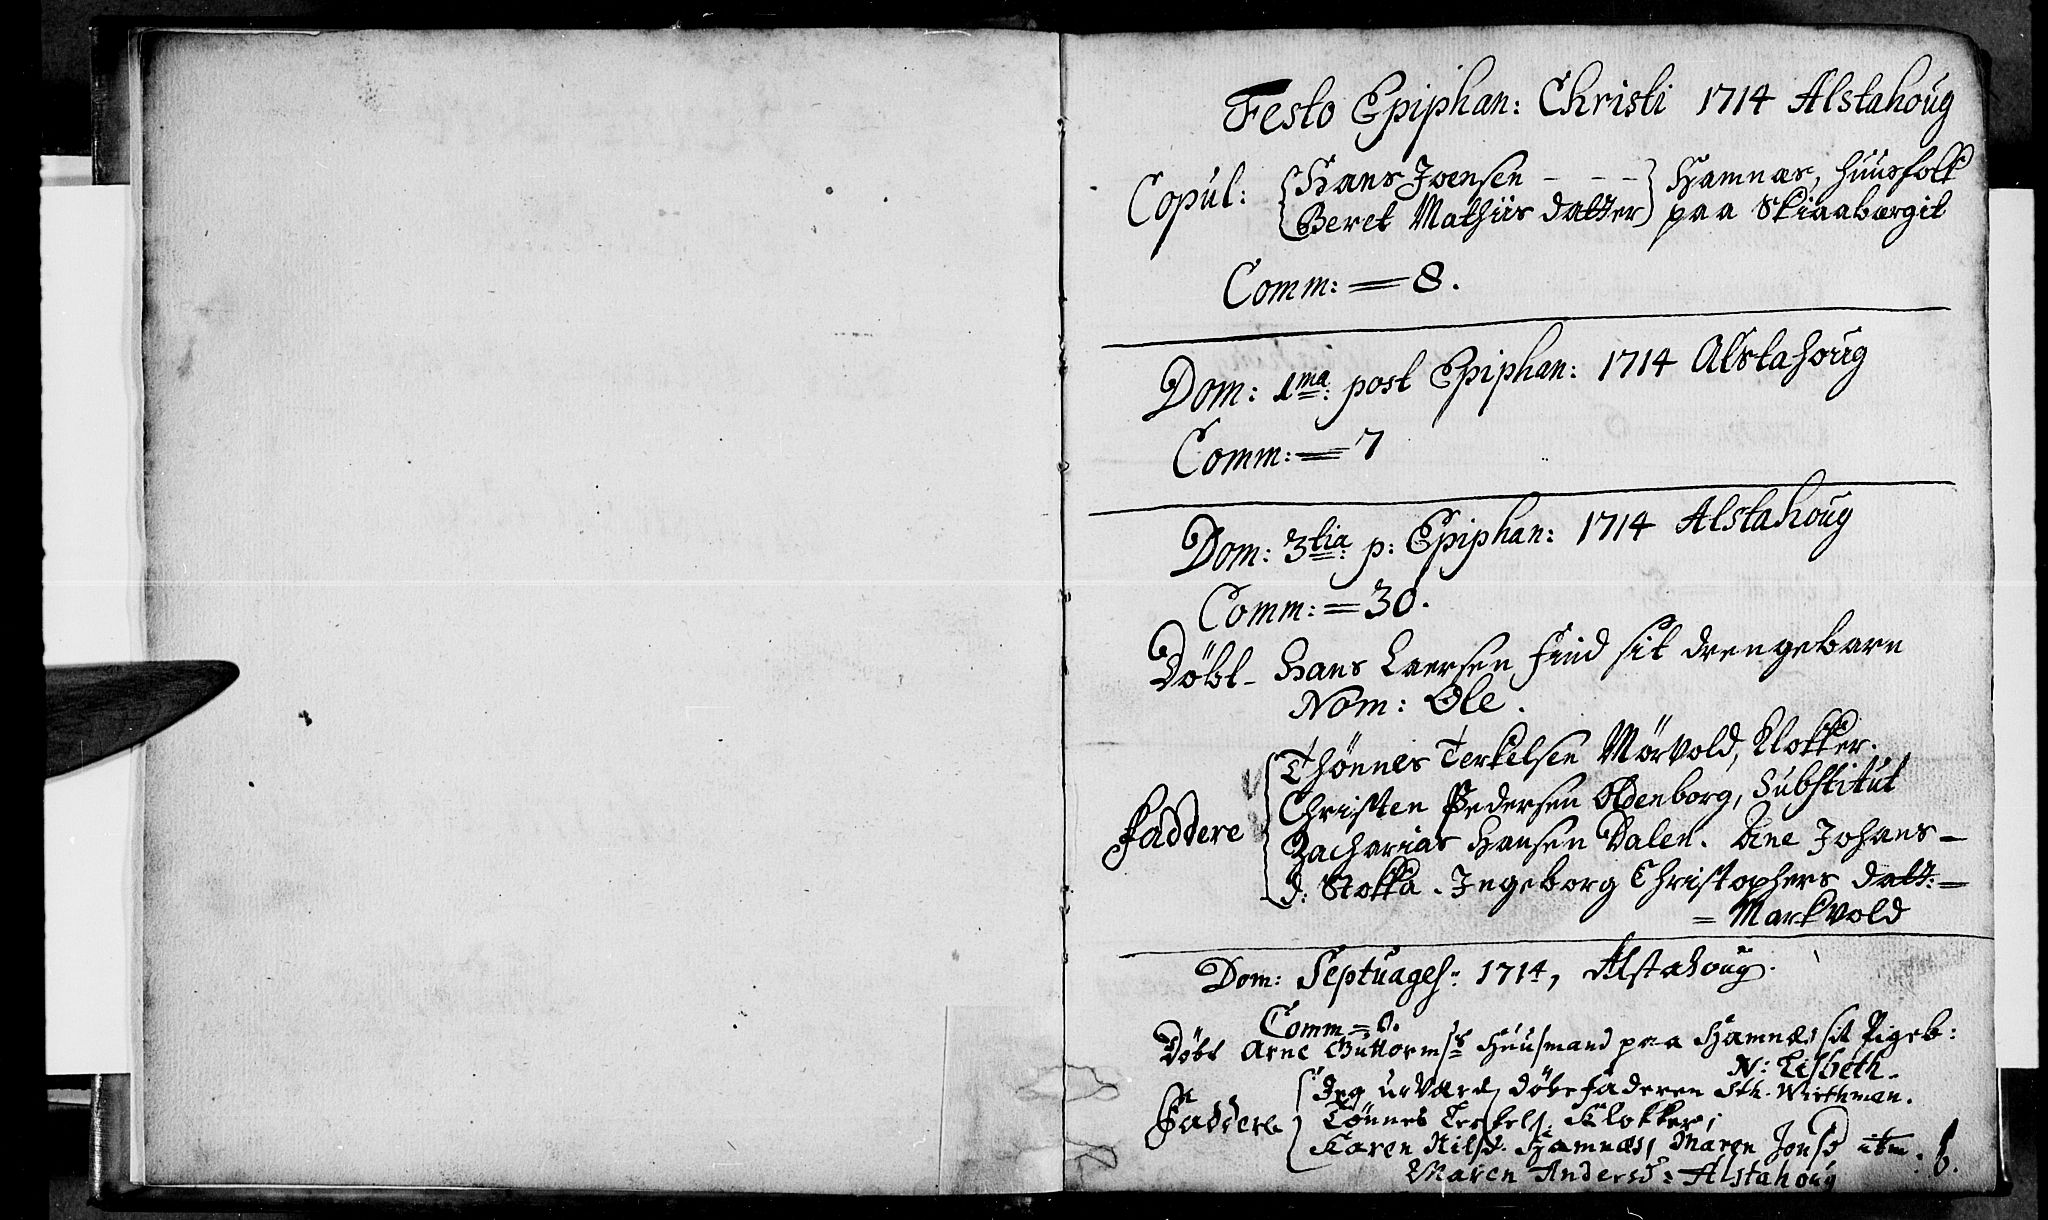 Festo Epiphan: Christi 1714 Alstahoug
Copul: Hans Joensen - - - Hamnæs, huusfolk
Beret Mathiis datter paa Skiaabærgit
Comm: = 8.
Dom: 1ma: post Epiphan: 1714 Alstahoug
Comm: = 7
Dom: 3tia: p: Epiphan: 1714 Alstahoug
Comm: = 30.
Döbt - Hans Laersen Find sit drengebarn
Nom: Ole.
Thönnes Terkelsen Mörvold, Klokker.
Christen Pedersen Oldenborg, Substitut
Faddere Zacharias Hansen Dalen. Ane Johans-
d: Stokka. Ingeborg Christophers datt: =
= Markvold
Dom: Septuages: 1714, Alstahoug.
Comm = 0.
Döbt Arne Guttormss: Huusmand paa Hamnæs sit Pigeb:
N: Lisbeth.
Jeg döbefaderen Sth. Wirthman.
Faddere Tönnes Terkels: Klokker;
Karen Nilsd. Hamnæs, Maren Jonsd itm.
Maren Andersd: Alstahoug